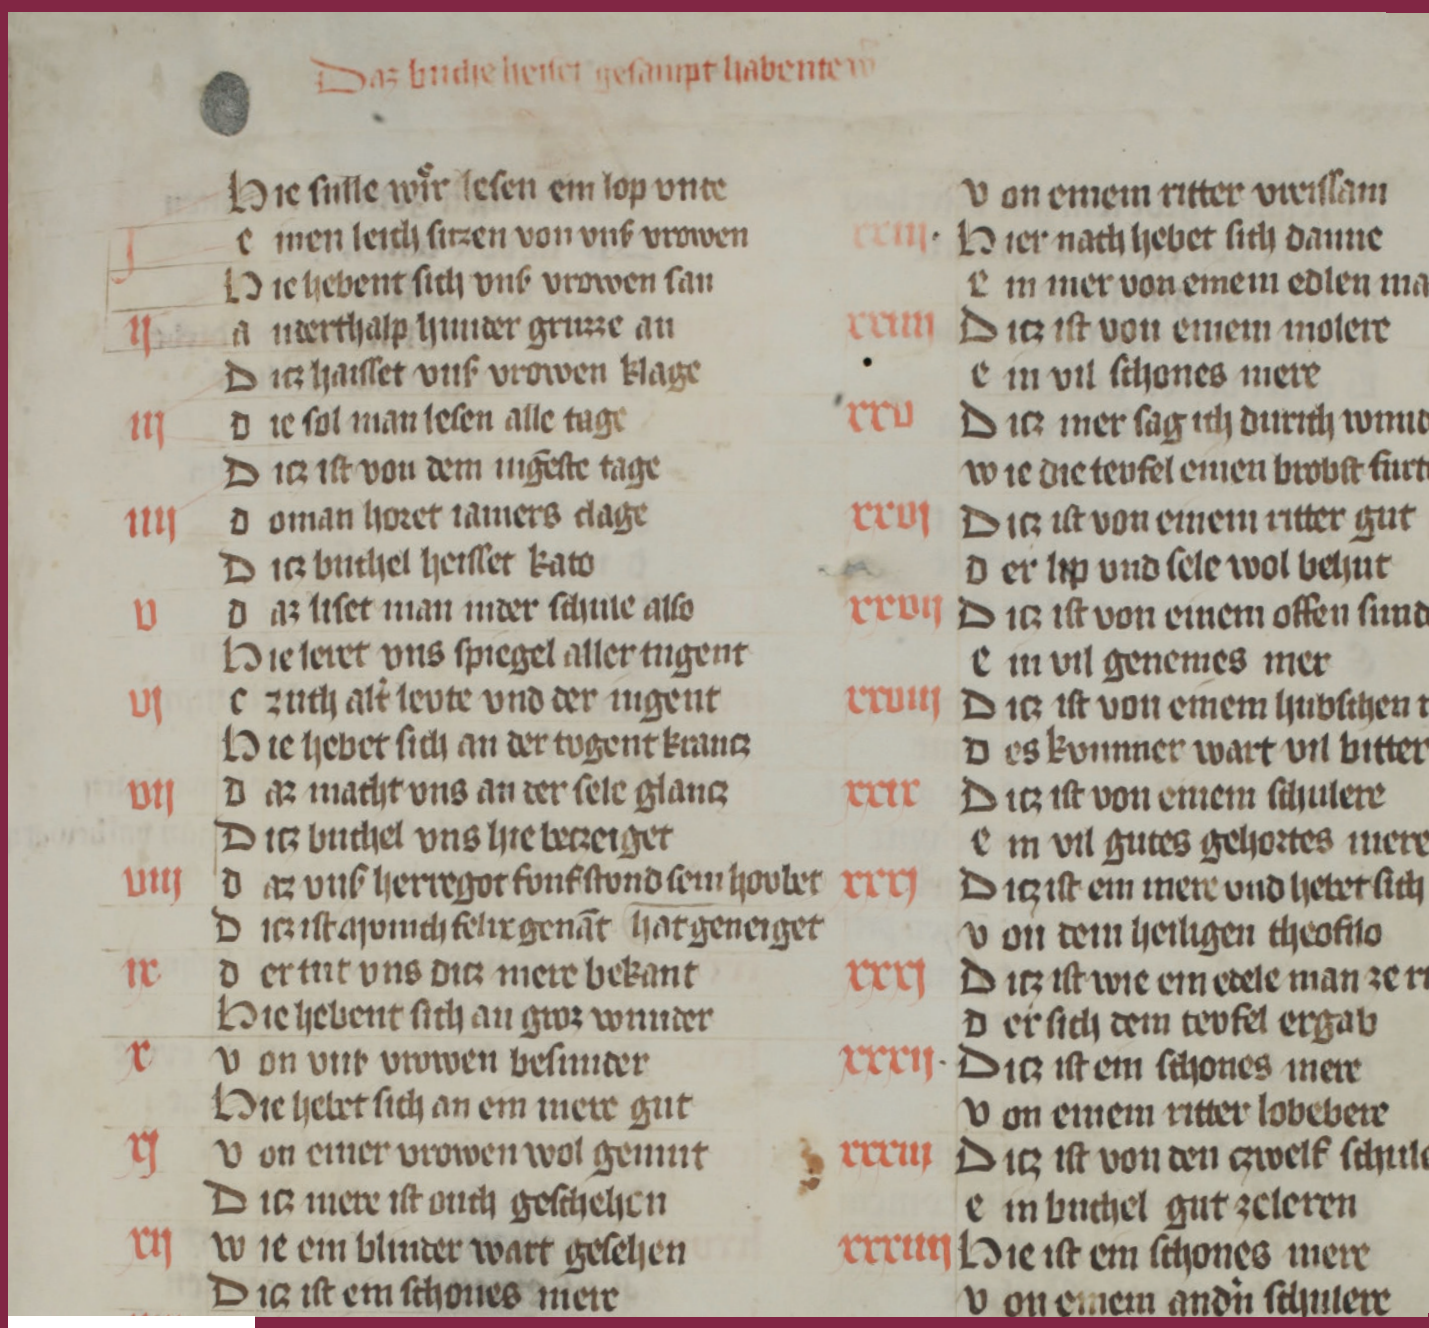 Daz buche heiset gesampt habentew
Hie sulle wir lesen ein lop vnte
j e inen leich sitzen von vnſ vrowen
Hie hebent sich vnſ vrowen san
ij a nderthalp hunder gruzze an
Ditz haisset vnſ vrowen klage
iij d ie sol man lesen alle tage
Ditz ist von dem iugeste tage
iiij d o man horet iamers clage
Ditz buchel heisset kato
v d az liset man inder schule also
Hie leret vns spiegel aller tugent
vj c zuch alt levte vnd der iugent
Hie hebet sich an der togent krantz
vij d az macht vns an der sele glantz
Ditz buchel vns hie betzeiget
viij d az vnſ herregot fonfstond sein hovbet
Ditz ist a munch felix genāt hat geneiget
ix d er tut vns ditz mere bekant
Hie hebent sich an groz wunder
x v on vnſ vrowen besunder
Hie hebet sich an ein mere gut
xj v on einer vrowen wol gemut
Ditz mere ist ouch geschehen
xij w ie ein blinder wart gesehen
Ditz ist ein schones mere
v on einem ritter vreissam
xxiij· Hier nach hebet sich danne
e in mer von einem edlen ma
xxiiij Ditz ist von einem molere
e in vil schones mere
xxv Ditz mer sag ich durich wund
w ie die tevfel einen brobst furt
xxvj Ditz ist von einem ritter gut
d er lip vnd sele wol behut
xxvij Ditz ist von einem offen sund
e in vil genemes mer
xxviij Ditz ist von einem hubschen r
d es kvmmer wart vil bitter
xxix Ditz ist von einem schulere
e in vil gutes gehortes mere
xxxj Ditz ist ein mere vnd hebet sich
v on dem heiligen theofilo
xxxj Ditz ist wie ein edele man ze ri
d er sich dem tevfel ergab
xxxij· Ditz ist ein schones mere
v on einem ritter lobebere
xxxiij Ditz ist von den czwelf schule
e in buchel gut zeleren
xxxiiij Hie ist ein schones mere
v on einem andn̄ schulere